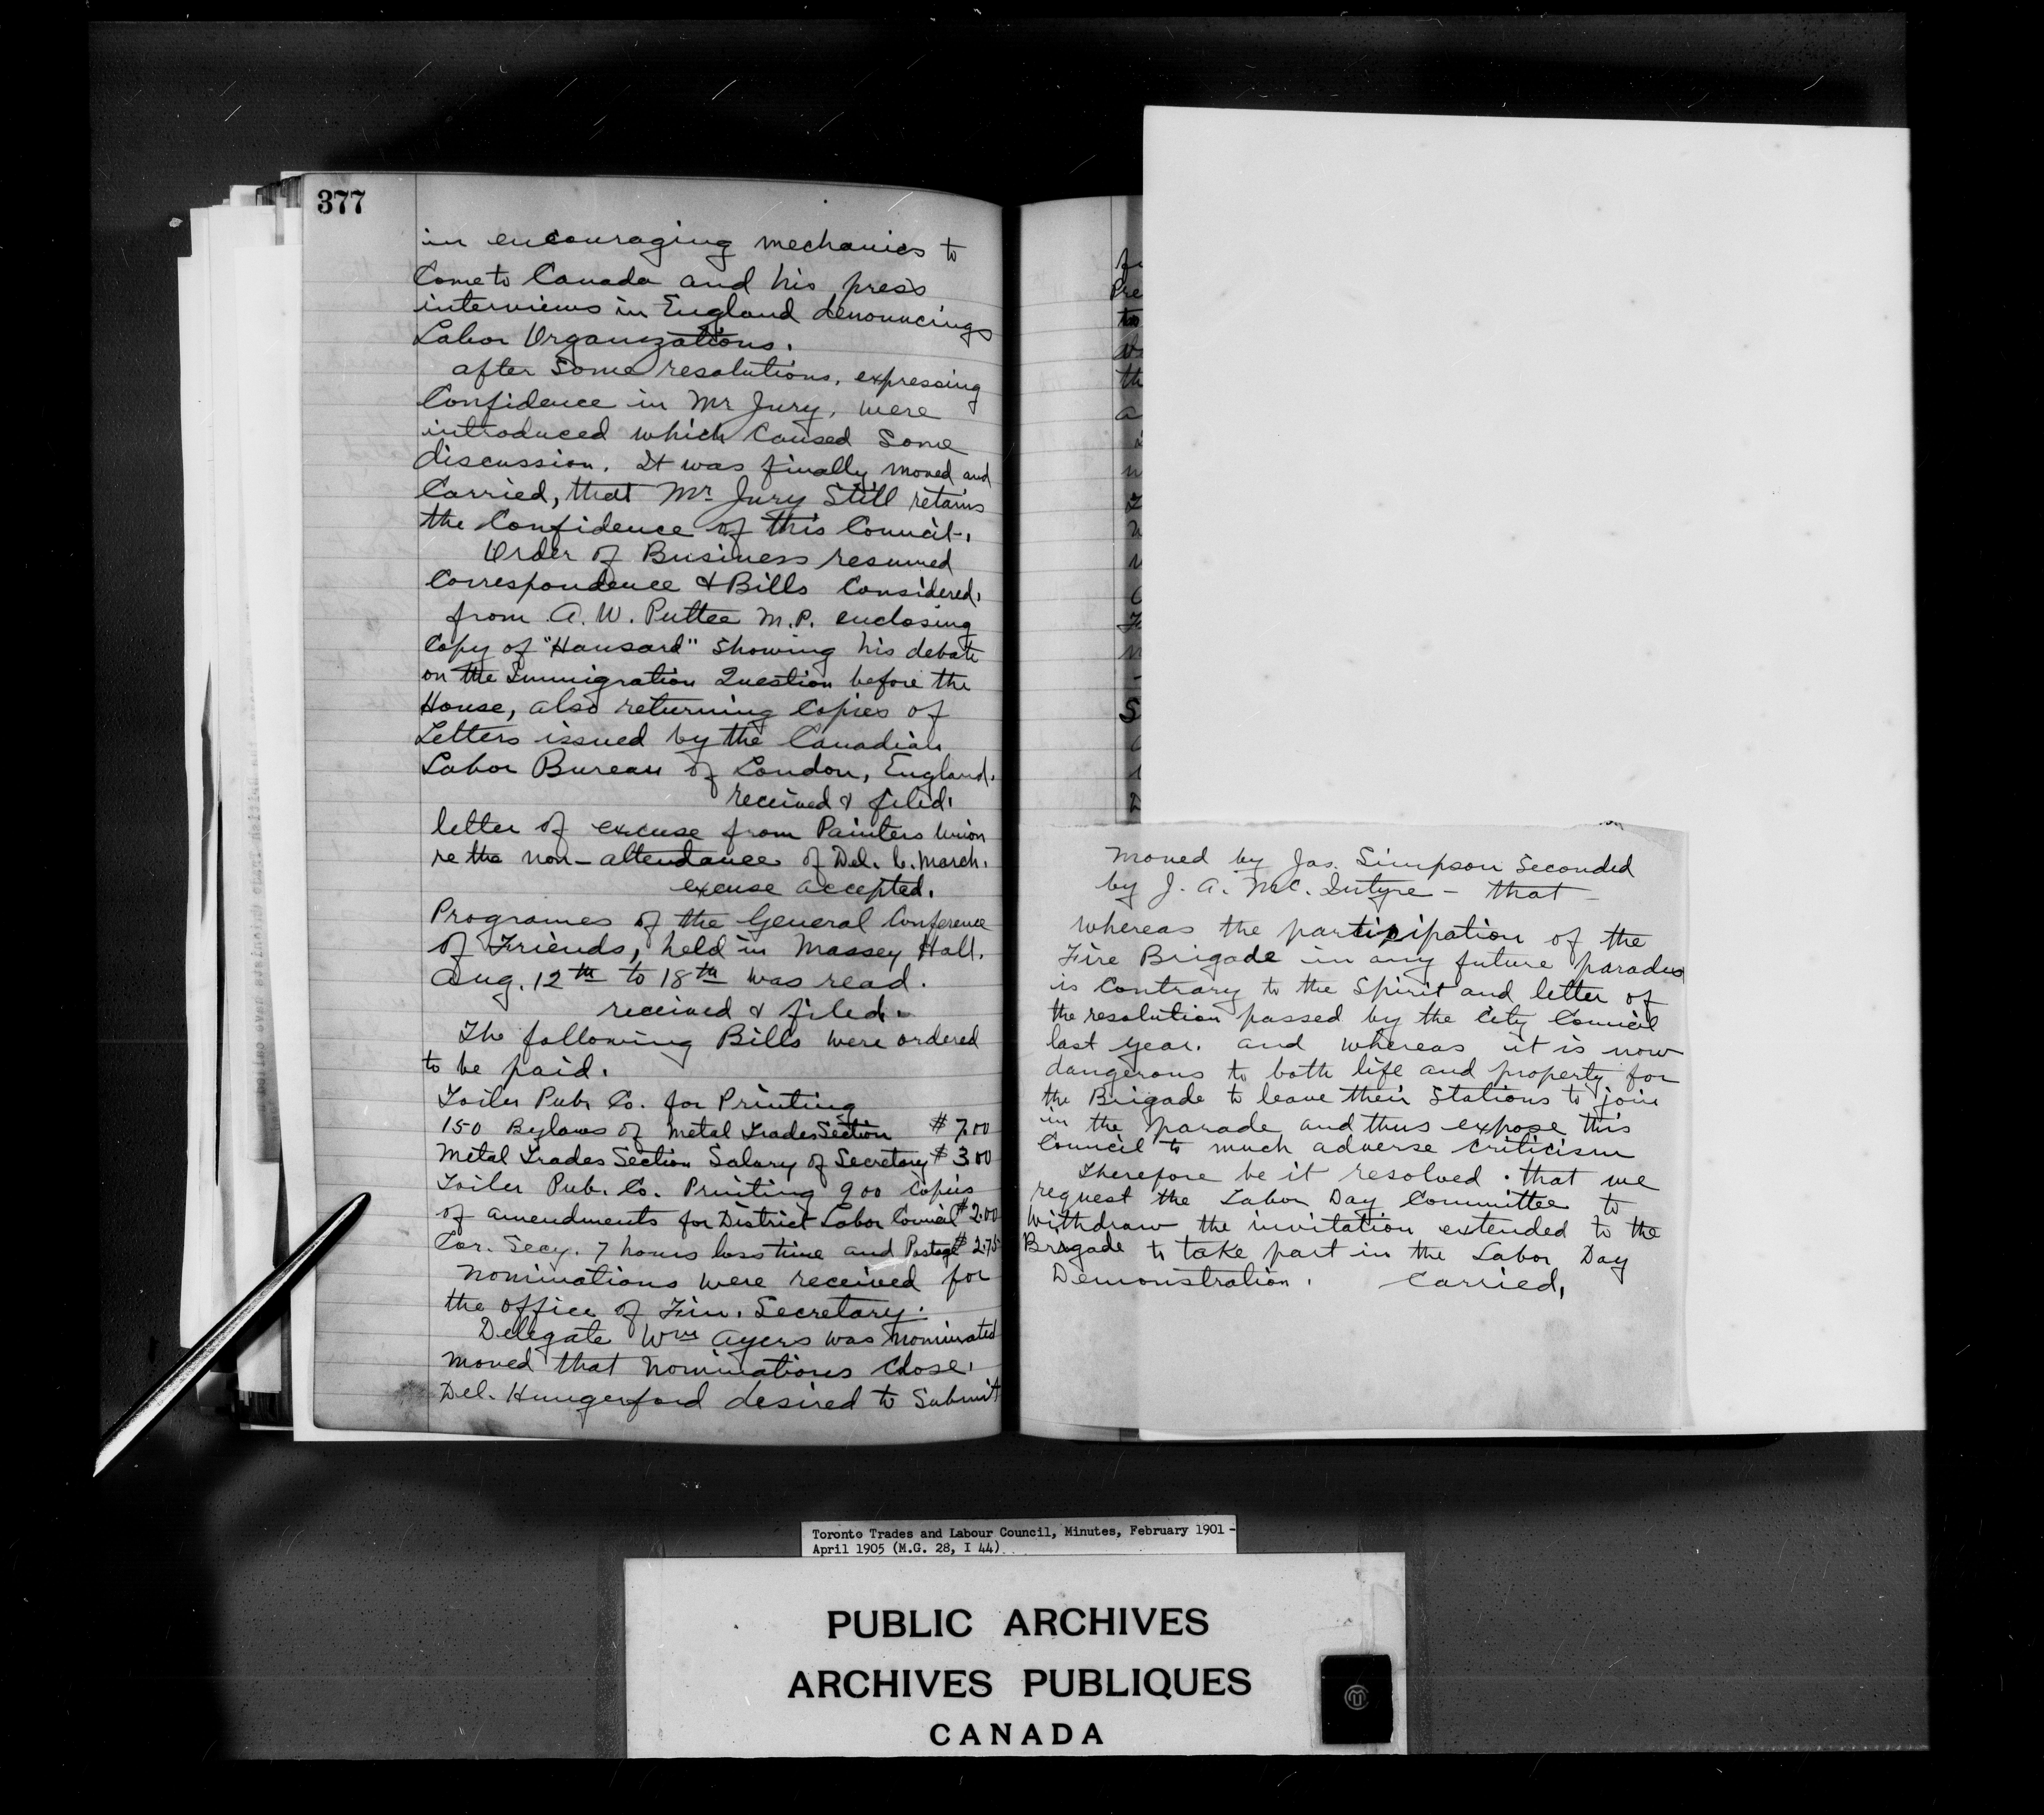 377
in encouraging mechanics to
Come to Canada and his press
interviews in England denouncings
Labor Organizations.
after Some resolutions, expressing
Confidence in Mr Jury, were
introduced which Caused Some
discussion. It was finally moved and
Carried, that Mr Jury Still retains
the Confidence of this Council.
Order of Business resumed
Correspondence & Bills Considered.
from A. W. Puttee M.P. enclosing
Copy of "Hansard" Showing his debate
on the Immigration Question before the
House, also returning Copies of
Letters issued by the Canadian
Labor Bureau of London, England.
received & filed.
letter of excuse from Painters Union
re the non-attendance of Del. C. March.
excuse accepted.
Programes of the General Conference
of Friends, held in Massey Hall.
Aug. 12th to 18th was read.
received & filed.
The following Bills were ordered
to be paid.
Toiler Pub. Co. for Printing
150 Bylaws of Metal Trades Section $ 7.00
Metal Trades Section Salary of Secretary $ 3.00
Toiler Pub. Co. Printing 900 Copies
of amendments for District Labor Council $ 2.00
Cor. Secy. 7 hours loss time and Postage $ 2.75
Nominations were received for
the office of Fin. Secretary.
Delegate Wm Ayers was Nominated
Moved that Nominations Close.
Del. Hungerford desired to Submit
Pre
th
a
S
Moved by Jas. Simpson Seconded
by J. A. McIntyre - that -
whereas the participation of the
Fire Brigade in any future parades
is Contrary to the Spirit and letter of
the resolution passed by the City Council
last year. and whereas it is now
dangerous to both life and property for
the Brigade to leave their Stations to join
in the parade and thus expose this
Council to much adverse Criticism
Therefore be it resolved. that we
request the Labor Day Committee to
withdraw the invitation extended to the
Brigade to take part in the Labor Day
Demonstration. Carried,
Toronto Trades and Labour Council, Minutes, February 1901 -
April 1905 (M.G. 28, I 44)
PUBLIC ARCHIVES
ARCHIVES PUBLIQUES
CANADA